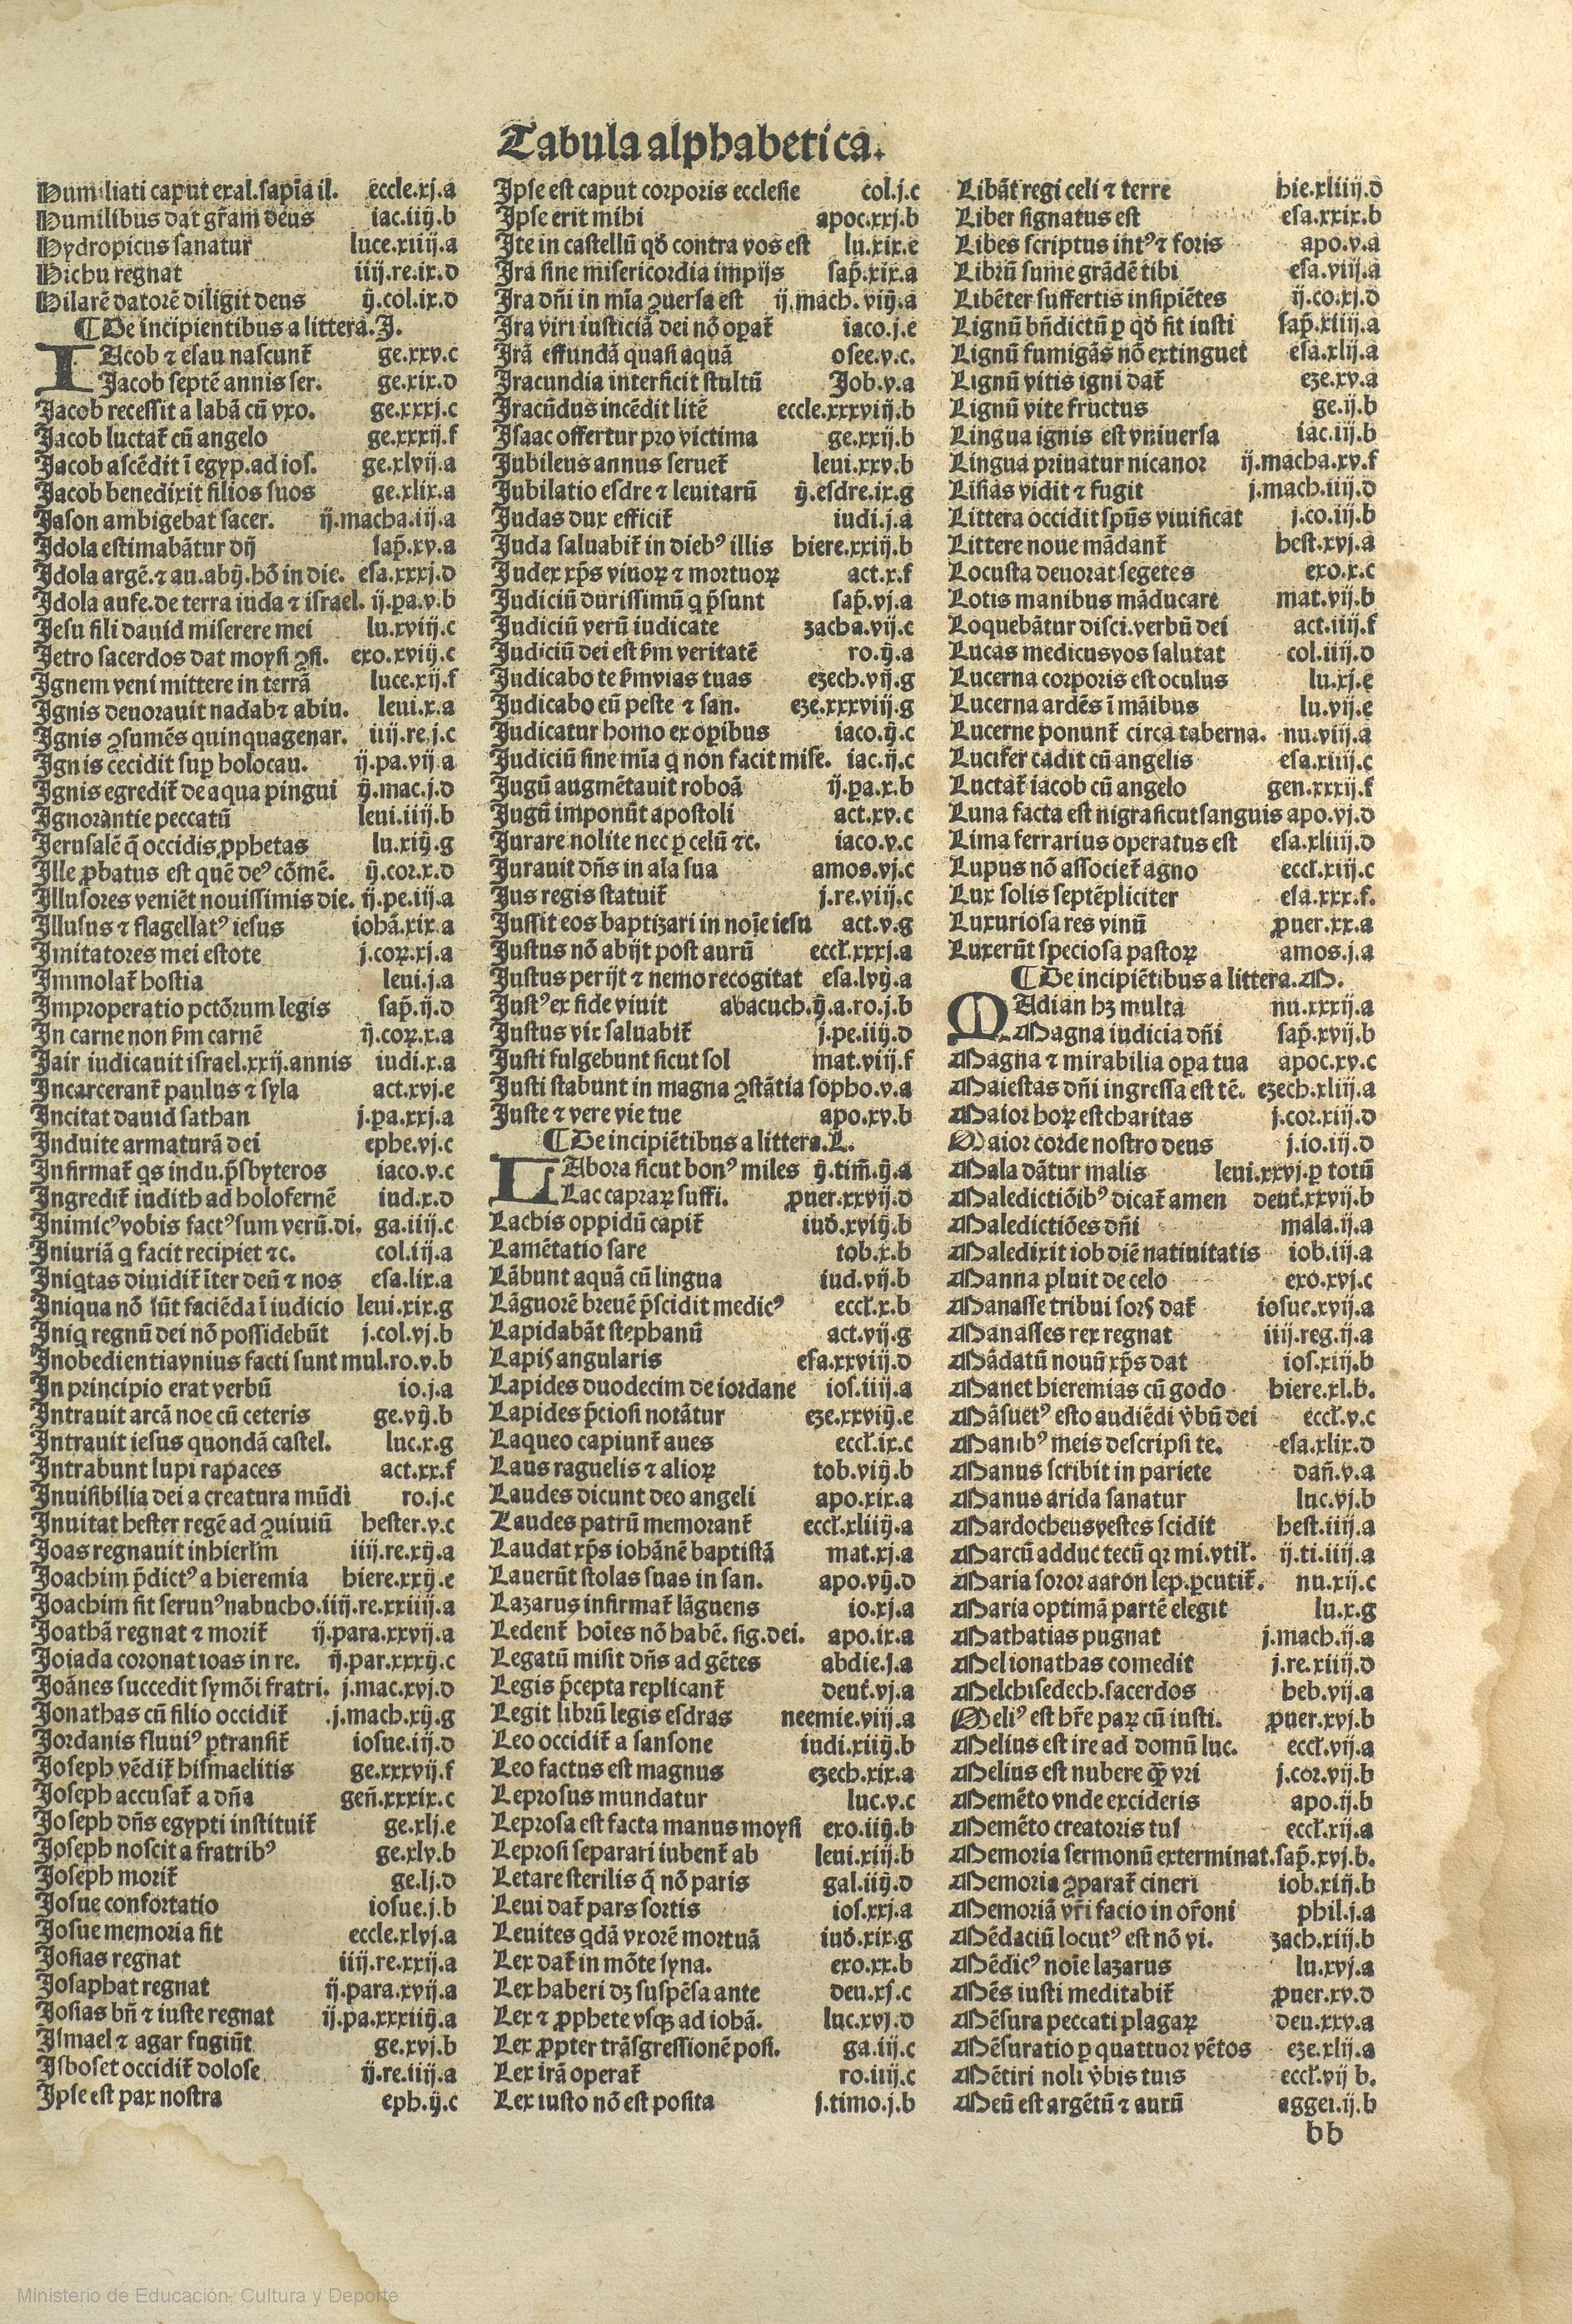 Tabula alphabetica.
Humiliati caput exal.sapia il. eccle.xj.a
Humilibus dat gr̃am deus iac.iiij.b
Hydropicus sanatur luce.xiiij.a
Hichu regnat iiij.re.ix.d
Hilarẽ datorẽ diligit deus ij.col.ix.d
¶ De incipientibus a littera.I.
IAcob ⁊ esau nascunt̃ ge.xxv.c
Jacob septẽ annis ser. ge.xix.d
Jacob recessit a labã cũ vxo. ge.xxxj.c
Jacob luctat̃ cũ angelo ge.xxxij.f
Jacob ascẽdit ĩ egyp.ad ios. ge.xlvij.a
Jacob benedixit filios suos ge.xlix.a
Jason ambigebat sacer. ij.macha.iij.a
Idola estimabãtur dij sap̃.xv.a
Idola argẽ.⁊ au.abij.hõ in die. esa.xxxj.d
Idola aufe.de terra iuda ⁊ israel. ij.pa.v.b
Jesu fili dauid miserere mei lu.xviij.c
Jetro sacerdos dat moysi ꝯsi. exo.xviij.c
Ignem veni mittere in terrã luce.xij.f
Ignis deuorauit nadab⁊ abiu. leui.x.a
Ignis ꝯsumẽs quinquagenar. iiij.re.j.c
Ignis cecidit suꝑ holocau. ij.pa.vij.a
Ignis egredit̃ de aqua pingui ij.mac.j.d
Ignorantie peccatũ leui.iiij.b
Jerusalẽ q̃ occidis ꝓphetas lu.xiij.g
Ille ꝓbatus est quẽ deꝰ cõmẽ. ij.cor.x.d
Illusores veniẽt nouissimis die. ij.pe.iij.a
Illusus ⁊ flagellatꝰ iesus iohã.xix.a
Imitatores mei estote j.coꝝ.xj.a
Immolat̃ hostia leui.j.a
Improperatio pctõrum legis sap̃.ij.d
In carne non km̃ carnẽ ij.coꝝ.x.a
Jair iudicauit israel.xxij.annis iudi.x.a
Incarcerant̃ paulus ⁊ syla act.xvj.e
Incitat dauid sathan j.pa.xxj.a
Induite armaturã dei ephe.vj.c
Infirmat̃ qs indu.p̃sbyteros iaco.v.c
Ingredit̃ iudith ad holofernẽ iud.x.d
Inimicꝰvobis factꝰsum verũ.di. ga.iiij.c
Iniuriã q facit recipiet ⁊c. col.iij.a
Iniqtas diuidit̃ ĩter deũ ⁊ nos esa.lix.a
Iniqua nõ sũt faciẽda ĩ iudicio leui.xix.g
Iniq regnũ dei nõ possidebũt j.col.vj.b
Inobedientiavnius facti sunt mul.ro.v.b
In principio erat verbũ io.j.a
Intrauit arcã noe cũ ceteris ge.vij.b
Intrauit iesus quondã castel. luc.x.g
Intrabunt lupi rapaces act.xx.f
Inuisibilia dei a creatura mũdi ro.j.c
Inuitat hester regẽ ad ꝯuiuiũ hester.v.c
Joas regnauit inhierl̃m iiij.re.xij.a
Joachim p̃dictꝰ a hieremia hiere.xxij.e
Joachim fit seruuꝰnabucho.iiij.re.xxiiij.a
Joathã regnat ⁊ morit̃ ij.para.xxvij.a
Joiada coronat ioas in re. ij.par.xxxij.c
Joãnes succedit symõi fratri. j.mac.xvj.d
Jonathas cũ filio occidit̃ .j.mach.xij.g
Jordanis fluuiꝰ ꝑtransit̃ iosue.iij.d
Joseph vẽdit̃ hismaelitis ge.xxxvij.f
Joseph accusat̃ a dña geñ.xxxix.c
Joseph dñs egypti instituit̃ ge.xlj.e
Joseph noscit a fratribꝰ ge.xlv.b
Joseph morit̃ ge.lj.d
Josue confortatio iosue.j.b
Josue memoria fit eccle.xlvj.a
Josias regnat iiij.re.xxij.a
Josaphat regnat ij.para.xvij.a
Josias bñ ⁊ iuste regnat ij.pa.xxxiiij.a
Ismael ⁊ agar fugiũt ge.xvj.b
Isboset occidit̃ dolose ij.re.iiij.a
Ipse est pax nostra eph.ij.c
Ipse est caput corporis ecclesie col.j.c
Ipse erit mihi apoc.xxj.b
Ite in castellũ qð contra vos est lu.xix.e
Ira sine misericordia impijs sap̃.xix.a
Ira dñi in mĩa ꝯuersa est ij.mach.viij.a
Ira viri iusticiã dei nõ opat̃ iaco.j.e
Irã effundã quasi aquã osee.v.c.
Iracundia interficit stultũ Job.v.a
Iracũdus incẽdit litẽ eccle.xxxviij.b
Isaac offertur pro victima ge.xxij.b
Jubileus annus seruet̃ leui.xxv.b
Jubilatio esdre ⁊ leuitarũ ij.esdre.ix.g
Judas dux efficit̃ iudi.j.a
Juda saluabit̃ in diebꝰ illis hiere.xxiij.b
Judex xp̃s viuoꝝ ⁊ mortuoꝝ act.x.f
Judiciũ durissimũ q p̃sunt sap̃.vj.a
Judiciũ verũ iudicate zacha.vij.c
Judiciũ dei est km̃ veritatẽ ro.ij.a
Judicabo te km̃vias tuas ezech.vij.g
Judicabo eũ peste ⁊ san. eze.xxxviij.g
Judicatur homo ex oꝑibus iaco.ij.c
Judiciũ sine mĩa q non facit mise. iac.ij.c
Jugũ augmẽtauit roboã ij.pa.x.b
Jugũ imponũt apostoli act.xv.c
Jurare nolite nec ꝑ celũ ⁊c. iaco.v.c
Jurauit dñs in ala sua amos.vj.c
Jus regis statuit̃ j.re.viij.c
Jussit eos baptizari in noĩe iesu act.v.g
Justus nõ abijt post aurũ eccl̃.xxxj.a
Justus perijt ⁊ nemo recogitat esa.lvij.a
Justꝰ ex fide viuit abacuch.ij.a.ro.j.b
Justus vir saluabit̃ j.pe.iiij.d
Justi fulgebunt sicut sol mat.viij.f
Justi stabunt in magna ꝯstãtia sopho.v.a
Juste ⁊ vere vie tue apo.xv.b
¶ De incipiẽtibus a littera.L.
LAbora sicut bonꝰ miles ij.tim̃.ij.a
Lac capraꝝ suffi. ꝓuer.xxvij.d
Lachis oppidũ capit̃ iuð.xviij.b
Lamẽtatio sare tob.x.b
Lãbunt aquã cũ lingua iud.vij.b
Lãguorẽ breuẽ p̃scidit medicꝰ eccl̃.x.b
Lapidabãt stephanũ act.vij.g
Lapis angularis esa.xxviij.d
Lapides duodecim de iordane ios.iiij.a
Lapides p̃ciosi notãtur eze.xxviij.e
Laqueo capiunt̃ aues eccl̃.ix.c
Laus raguelis ⁊ alioꝝ tob.viij.b
Laudes dicunt deo angeli apo.xix.a
Laudes patrũ memorant̃ eccl̃.xliiij.a
Laudat xp̃s iohãnẽ baptistã mat.xj.a
Lauerũt stolas suas in san. apo.vij.d
Lazarus infirmat̃ lãguens io.xj.a
Ledent̃ hoĩes nõ habẽ.sig.dei. apo.ix.a
Legatũ misit dñs ad gẽtes abdie.j.a
Legis p̃cepta replicant̃ deut̃.vj.a
Legit librũ legis esdras neemie.viij.a
Leo occidit̃ a sansone iudi.xiiij.b
Leo factus est magnus ezech.xix.a
Leprosus mundatur luc.v.c
Leprosa est facta manus moysi exo.iiij.b
Leprosi separari iubent̃ ab leui.xiij.b
Letare sterilis q̃ nõ paris gal.iiij.d
Leui dat̃ pars sortis ios.xxj.a
Leuites qdã vxorẽ mortuã iuð.xix.g
Lex dat̃ in mõte syna. exo.xx.b
Lex haberi dꝫ suspẽsa ante deu.xj.c
Lex ⁊ ꝓphete vsqꝫ ad iohã. luc.xvj.d
Lex ꝓpter trãsgressionẽ posi. ga.iij.c
Lex irã operat̃ ro.iiij.c
Lex iusto nõ est posita j.timo.j.b
Libãt regi celi ⁊ terre hie.xliiij.d
Liber signatus est esa.xxix.b
Libes scriptus intꝰ⁊ foris apo.v.a
Librũ sume grãdẽ tibi esa.viij.a
Libẽter suffertis insipiẽtes ij.co.xj.d
Lignũ bñdictũ ꝑ qð fit iusti sap̃.xiiij.a
Lignũ fumigãs nõ extinguet esa.xlij.a
Lignũ vitis igni dat̃ eze.xv.a
Lignũ vite fructus ge.ij.b
Lingua ignis est vniuersa iac.iij.b
Lingua priuatur nicanor ij.macha.xv.f
Lisias vidit ⁊ fugit j.mach.iiij.d
Littera occidit spũs viuificat j.co.iij.b
Littere noue mãdant̃ hest.xvj.a
Locusta deuorat segetes exo.x.c
Lotis manibus mãducare mat.vij.b
Loquebãtur disci.verbũ dei act.iiij.f
Lucas medicusvos salutat col.iiij.d
Lucerna corporis est oculus lu.xj.e
Lucerna ardẽs ĩ mãibus lu.vij.e
Lucerne ponunt̃ circa taberna. nu.viij.a
Lucifer cadit cũ angelis esa.xiiij.c
Luctat̃ iacob cũ angelo gen.xxxij.f
Luna facta est nigra sicut sanguis apo.vj.d
Lima ferrarius operatus est esa.xliiij.d
Lupus nõ associet̃ agno eccl̃.xiij.c
Lux solis septẽpliciter esa.xxx.f.
Luxuriosa res vinũ ꝓuer.xx.a
Luxerũt speciosa pastoꝝ amos.j.a
¶ De incipiẽtibus a littera.M.
MAdian hꝫ multa nu.xxxij.a
Magna iudicia dñi sap̃.xvij.b
Magna ⁊ mirabilia oꝑa tua apoc.xv.c
Maiestas dñi ingressa est tẽ. ezech.xliij.a
Maior hoꝝ est charitas j.cor.xiij.d
Maior corde nostro deus j.io.iij.d
Mala dãtur malis leui.xxvj.ꝑ totũ
Maledictiõibꝰ dicat̃ amen deut̃.xxvij.b
Maledictiões dñi mala.ij.a
Maledixit iob diẽ natiuitatis iob.iij.a
Manna pluit de celo exo.xvj.c
Manasse tribui sors dat̃ iosue.xvij.a
Manasses rex regnat iiij.reg.ij.a
Mãdatũ nouũ xp̃s dat ios.xiij.b
Manet hieremias cũ godo hiere.xl.b.
Mãsuetꝰ esto audiẽdi v̓bũ dei eccl̃.v.c
Manibꝰ meis descripsi te. esa.xlix.d
Manus scribit in pariete dañ.v.a
Manus arida sanatur luc.vj.b
Mardocheusvestes scidit hest.iiij.a
Marcũ adduc tecũ qꝛ mi.vtil̃. ij.ti.iiij.a
Maria soror aaron lep.ꝑcutit̃. nu.xij.c
Maria optimã partẽ elegit lu.x.g
Mathatias pugnat j.mach.ij.a
Mel ionathas comedit j.re.xiiij.d
Melchisedech.sacerdos heb.vij.a
Meliꝰ est hr̃e paꝝ cũ iusti. ꝓuer.xvj.b
Melius est ire ad domũ luc. eccl̃.vij.a
Melius est nubere qꝫ̃ vri j.cor.vij.b
Memẽto vnde excideris apo.ij.b
Memẽto creatoris tui eccl̃.xij.a
Memoria sermonũ exterminat.sap̃.xvj.b.
Memoria ꝯparat̃ cineri iob.xiij.b
Memoriã vr̃i facio in or̃oni phil.j.a
Mẽdaciũ locutꝰ est nõ vi. zach.xiij.b
Mẽdicꝰ noĩe lazarus lu.xvj.a
Mẽs iusti meditabit̃ ꝓuer.xv.d
Mẽsura peccati plagaꝝ deu.xxv.a
Mẽsuratio ꝑ quattuor vẽtos eze.xlij.a
Mẽtiri noli v̓bis tuis eccl̃.vij b.
Meũ est argẽtũ ⁊ aurũ aggei.ij.b
bb
Ministerio de Educación, Cultura y Deporte